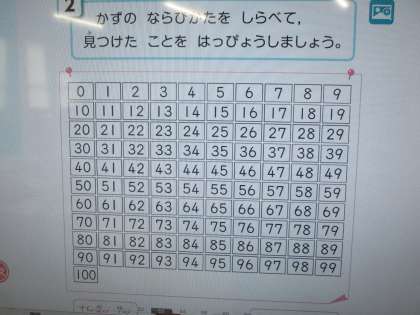 2
かずの ならびかたを しらべて,
見つけた ことを はっぴょうしましょう。
0 1 2 3 4 5 6 7 8 9
10 11 12 13 14 15 16 17 18 19
20 21 22 23 24 25 26 27 28 29
30 31 32 33 34 35 36 37 38 39
40 41 42 43 44 45 46 47 48 49
50 51 52 53 54 55 56 57 58 59
60 61 62 63 64 65 66 67 68 69
70 71 72 73 74 75 76 77 78 79
80 81 82 83 84 85 86 87 88 89
90 91 92 93 94 95 96 97 98 99
100